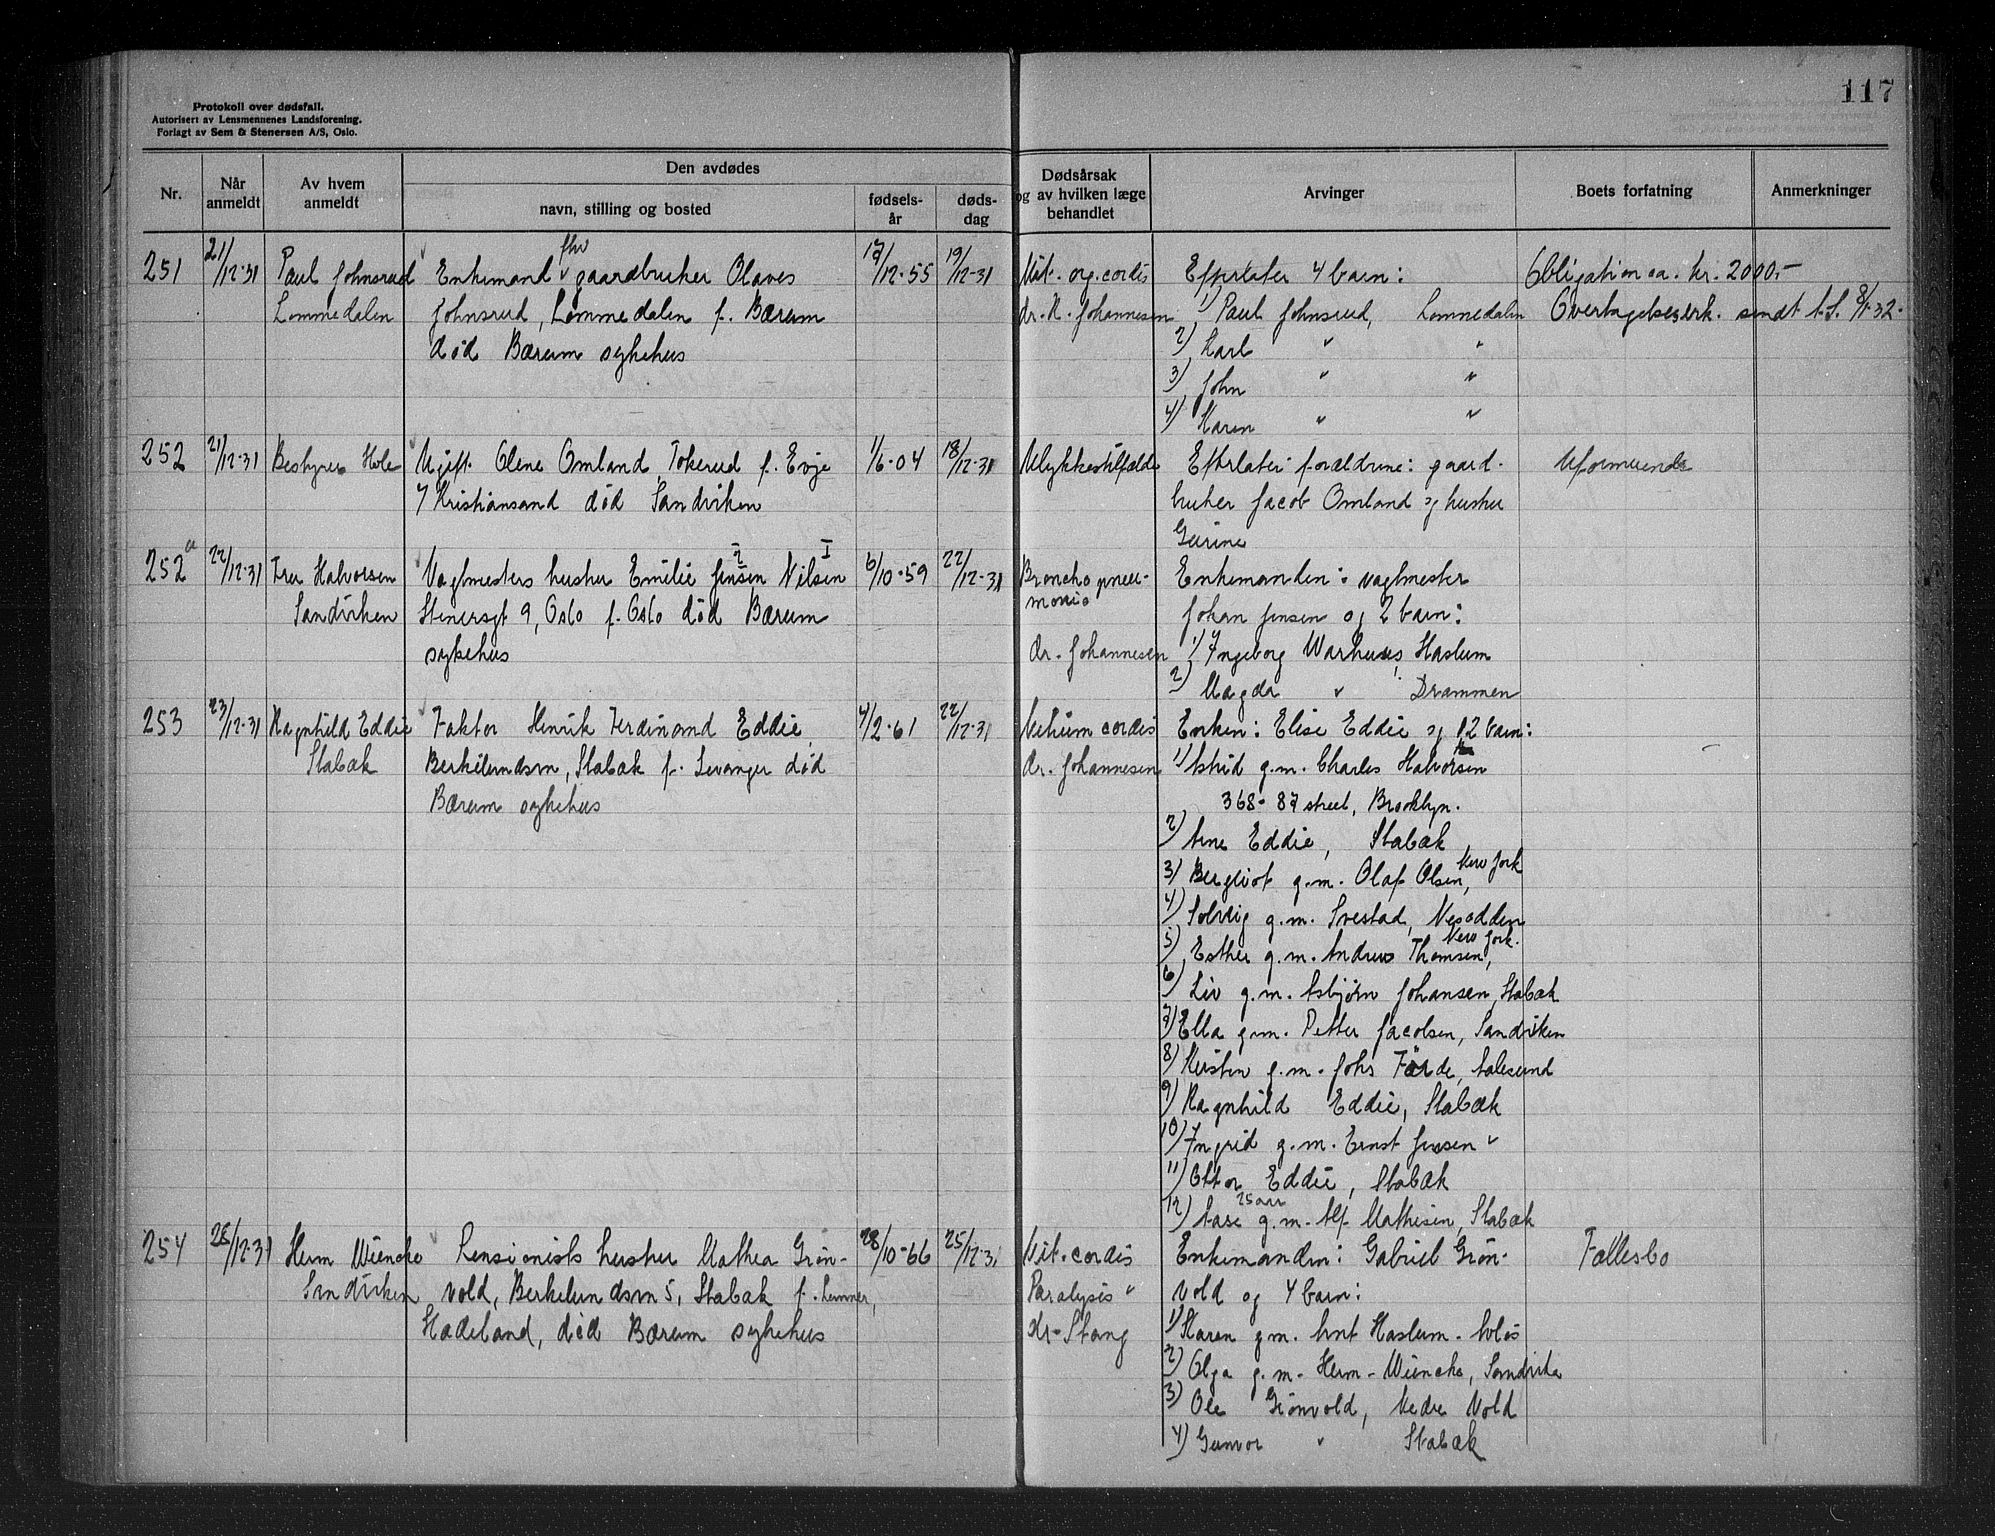 117
Protokoll over dødsfall.
Autorisert av Lensmennenes Landsforening.
Forlagt av Sem & Stenersen A/S, Oslo.
Nr.
Når anmeldt
Av hvem anmeldt
Den avdødes
navn, stilling og bosted
fødselsår
dødsdag
Dødsårsak og av hvilken læge behandlet
Arvinger
Boets forfatning
Anmerkninger
251 21/12-31 Paul Johnsrud Enkemand fhv gaardbruker Olaves 17/12-55 19/12-31 Vit. org. cordis Efterlater 4 barn: Obligation ca. kr. 2000,-
Lommedalen Johnsrud, Lommedalen f. Bærum dr. K. Johannesen 1) Paul Johnsrud, Lommedalen Overtagelseserk. sendt t.S. 8/1-32.
død Bærum sykehus 2) Karl " "
3) John " "
4) Karen " "
252 21/12-31 Bestyrer Hole Ugift Olene Omland, Tokerud f. Evje 1/6-04 18/12-31 Ulykkestilfælde Efterlater forældrene: gaard- Uformuende
/ Kristiansand død Sandviken bruker Jacob Omland og hustru
Gurine
252a 22/12-31 Fru Halvorsen Vagtmesters hustru Emilie Jensen 2 Nilsen I 6/10-59 22/12-31 Broncho pneu- Enkemanden: vagtmester
Sandviken Stenersgt 9, Oslo f. Oslo død Bærum monia Johan Jensen og 2 barn:
sykehus dr. Johannesen 1) Ingeborg Warhuus, Haslum
2) Magda " Drammen
253 23/12-31 Ragnhild Eddie Faktor Henrik Ferdinand Eddie 4/2-61 22/12-31 Vitium cordis Enken: Elise Eddie og 12 barn:
Stabæk Berkelundsvn, Stabæk f. Levanger død dr. Johannesen 1) Astrid g.m. Charles Halvorsen
Bærum sykehus 368-87 street, Brooklyn.
2) Arne Eddie, Stabæk
3) Bergliot g.m. Olaf Olsen, New York
4) Solveig g.m. Svestad, Nesodden
5) Esther g.m. Andrew Thomsen, New York.
6) Liv g.m. Asbjørn Johansen, Stabæk
7) Ella g.m. Petter Jacobsen, Sandviken
8) Kirsten g.m. Johs Förde, Aalesund
9) Ragnhild Eddie, Stabæk
10) Ingrid g.m. Ernst Jensen "
11) Ottar Eddie, Stabæk
12) Aase 25 aar g.m. Alf Mathisen, Stabæk
254 28/12-31 Herm Wiencke Pensionists hustru Mathea Grøn- 28/10-66 25/12-31 Vit. cordis Enkemanden: Gabriel Grøn- Fællesbo
Sandviken vold, Berkelundsvn 5, Stabæk f. Lunner, Paralysis " vold og 4 barn:
Hadeland, død Bærum sykehus dr. Stang 1) Karen g.m. Ant Haslum
2) Olga g.m. Herm. Wiencke, Sandvika
3) Ole Grønvold, Nedre Vold
4) Gunvor " Stabæk